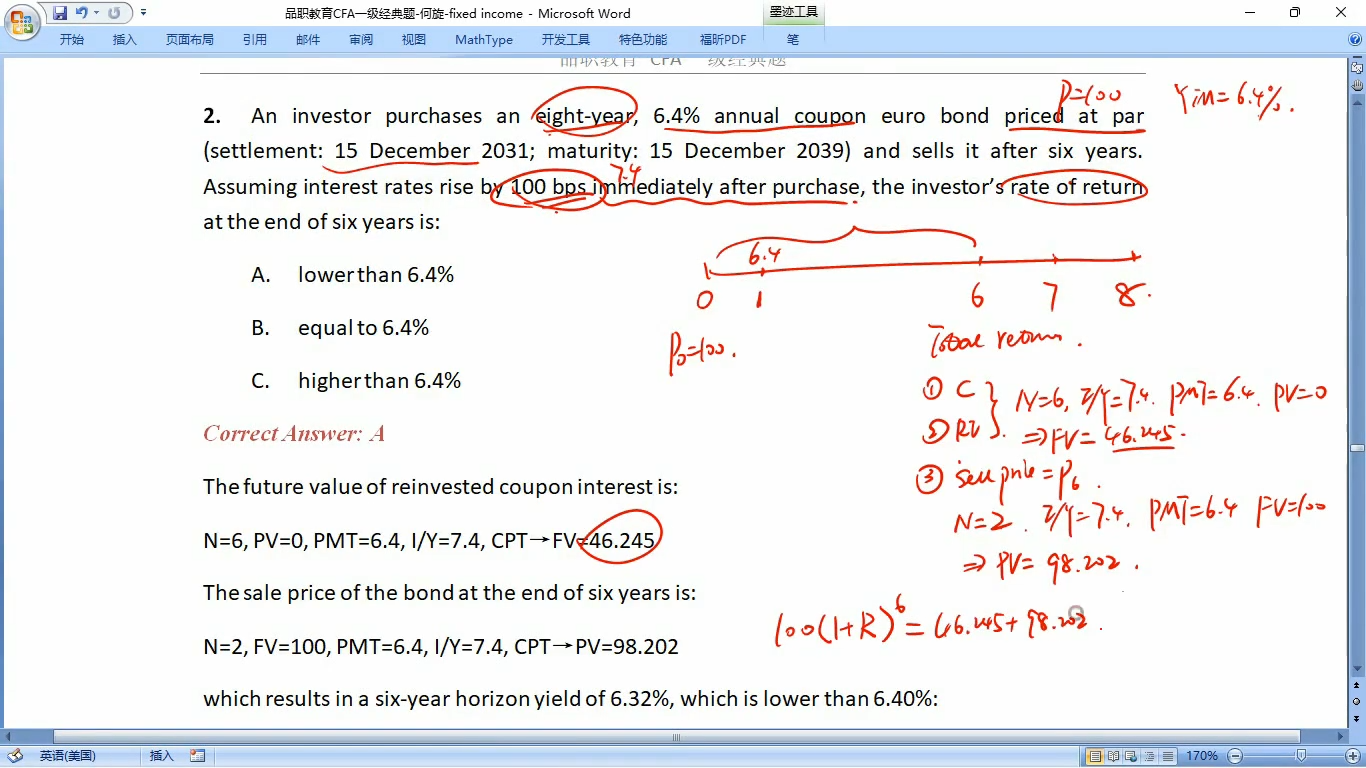 品职教育CFA一级经典题-何旋-fixed income - Microsoft Word
墨迹工具
开始 插入 页面布局 引用 邮件 审阅 视图 MathType 开发工具 特色功能 福昕PDF 笔
品职教育 CFA 一级经典题
P=100 YTM=6.4%.
2. An investor purchases an eight-year, 6.4% annual coupon euro bond priced at par
(settlement: 15 December 2031; maturity: 15 December 2039) and sells it after six years.
7.4
Assuming interest rates rise by 100 bps immediately after purchase, the investor's rate of return
at the end of six years is:
6.4
0 1 6 7 8.
A. lower than 6.4%
B. equal to 6.4%
C. higher than 6.4%
P₀=100.
Total return.
① C
② RI
N=6, I/Y=7.4. PMT=6.4. PV=0
⇒FV=46.245.
③ sell price=P₆.
N=2. I/Y=7.4. PMT=6.4 FV=100
⇒ PV=98.202.
100(1+R)⁶=46.245+98.202.
Correct Answer: A
The future value of reinvested coupon interest is:
N=6, PV=0, PMT=6.4, I/Y=7.4, CPT→FV=46.245
The sale price of the bond at the end of six years is:
N=2, FV=100, PMT=6.4, I/Y=7.4, CPT→PV=98.202
which results in a six-year horizon yield of 6.32%, which is lower than 6.40%:
英语(美国) 插入 170%